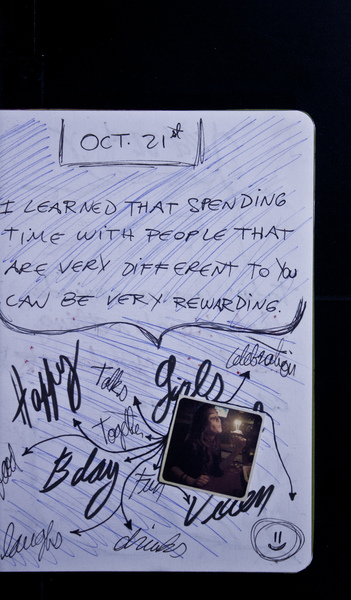 OCT. 21st
I LEARNED THAT SPENDING
TIME WITH PEOPLE THAT
ARE VERY DIFFERENT TO YOU
CAN BE VERY REWARDING.
celebration
Happy
Talks
Girls
Together
Bday
Fun
Vixen
laughs
drinks